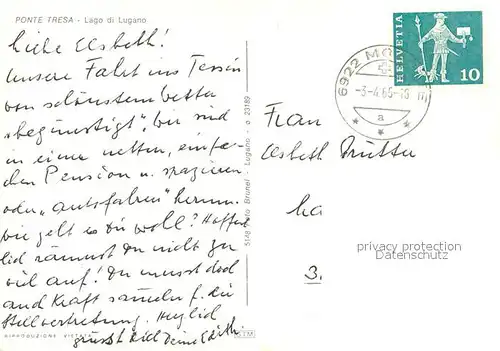 PONTE TRESA - Lago di Lugano
Liebe Elsbeth!
Unsere Fahrt ins Tessin
von schönstem Wetter
"begünstigt", wir sind
in einer netten, einfa-
chen Pension u. spazieren
oder "autofahren" herum.
Wie geht es Dir wohl? Hoffent-
lich räumst Du nicht zu
viel auf! Du musst doch
auch Kraft sammeln f. die
Stellvertretung. Herzlich
grüsst Dich Deine Edith
RIPRODUZIONE VIETATA
5148 Foto Brunel - Lugano - a 23189
HELVETIA
10
6922 MO
-3-4.65-
a
Frau
Elsbeth
3.
privacy protection